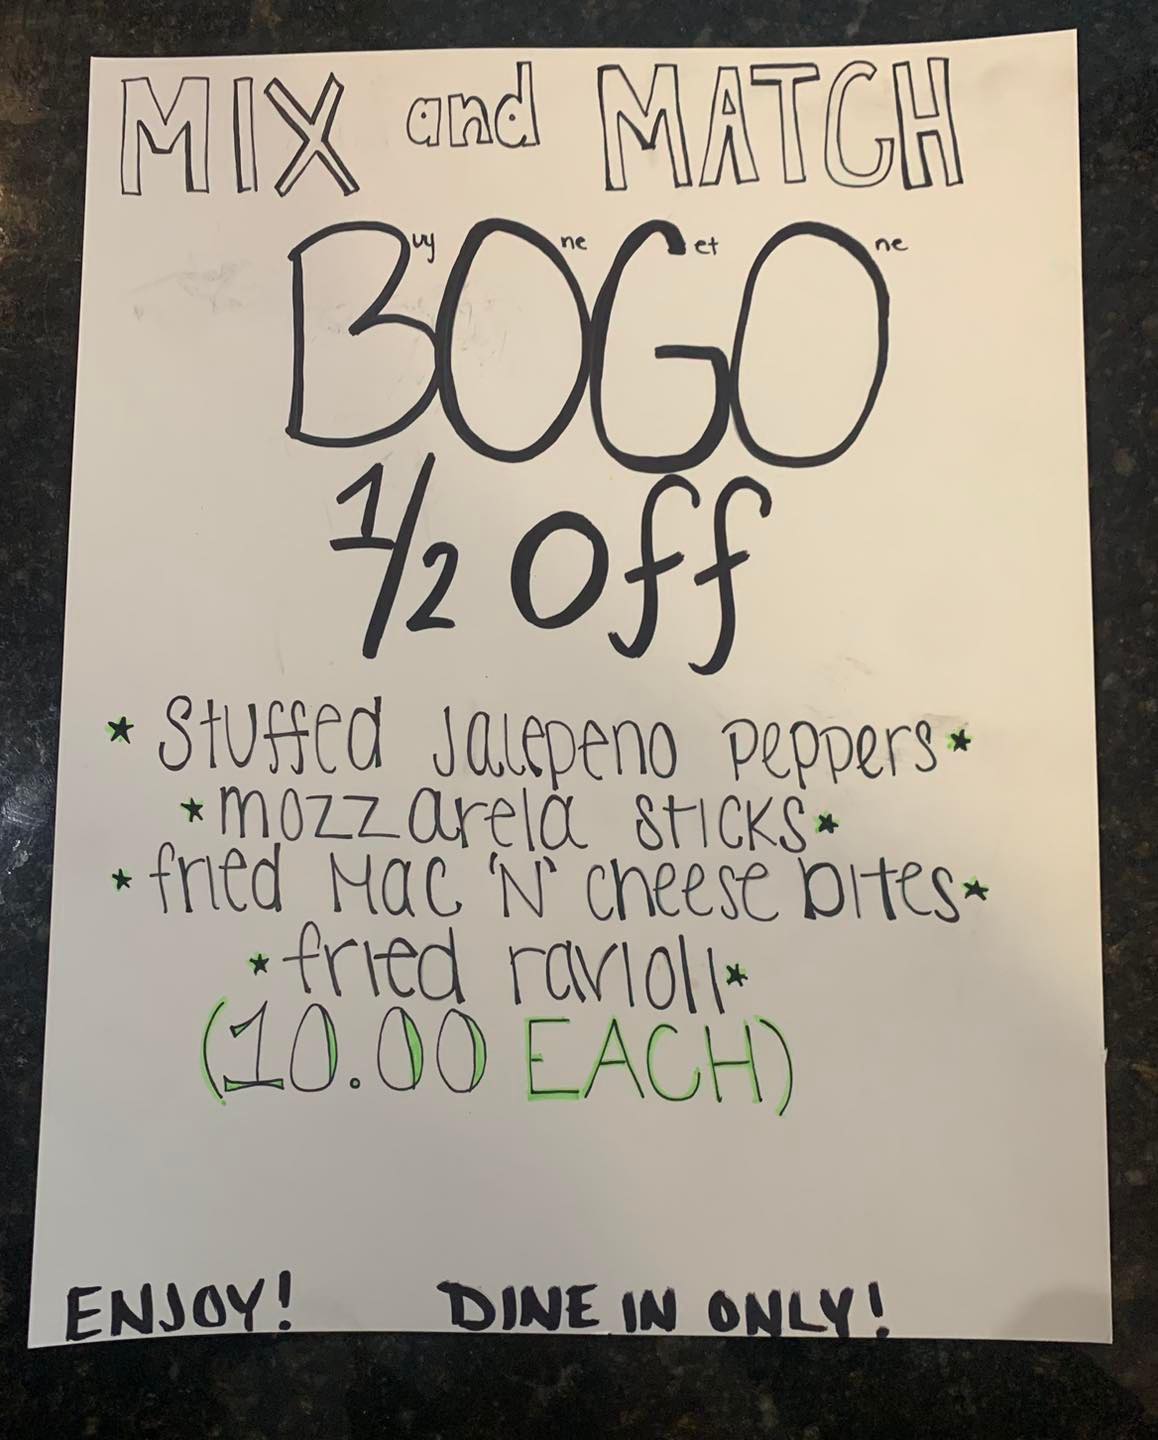 MIX and MATCH
Buy One Get One
1/2 Off
* Stuffed Jalepeno Peppers *
* mozzarela sticks *
* fried Mac 'N' cheese bites *
* fried ravioli *
(10.00 EACH)
ENJOY! DINE IN ONLY!